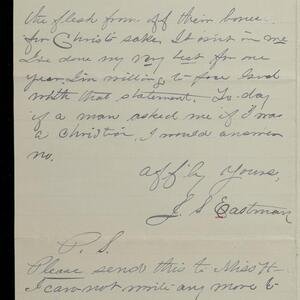 the flesh from off their bones
for Christs sake. It isnt in me
I've done my very best for one
year. I'm willing to face God
with that statement. To-day
if a man asked me if I was
a Christian, I would answer
no.
aff'ly yours,
J. S. Eastman
P. S.
Please send this to Miss H-
I can not write any more to